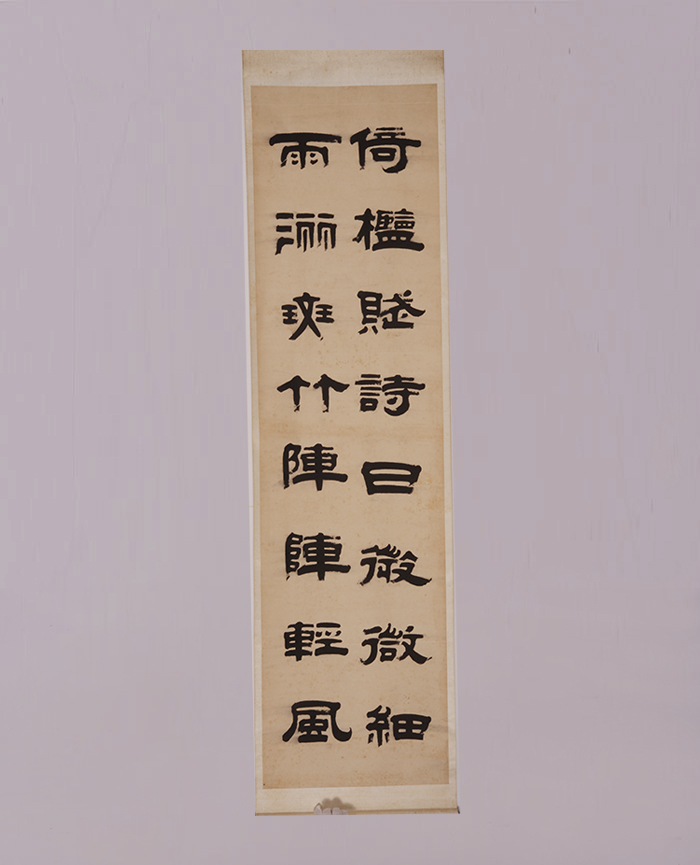 倚檻賦詩曰微微細
雨洒斑竹陣陣輕風